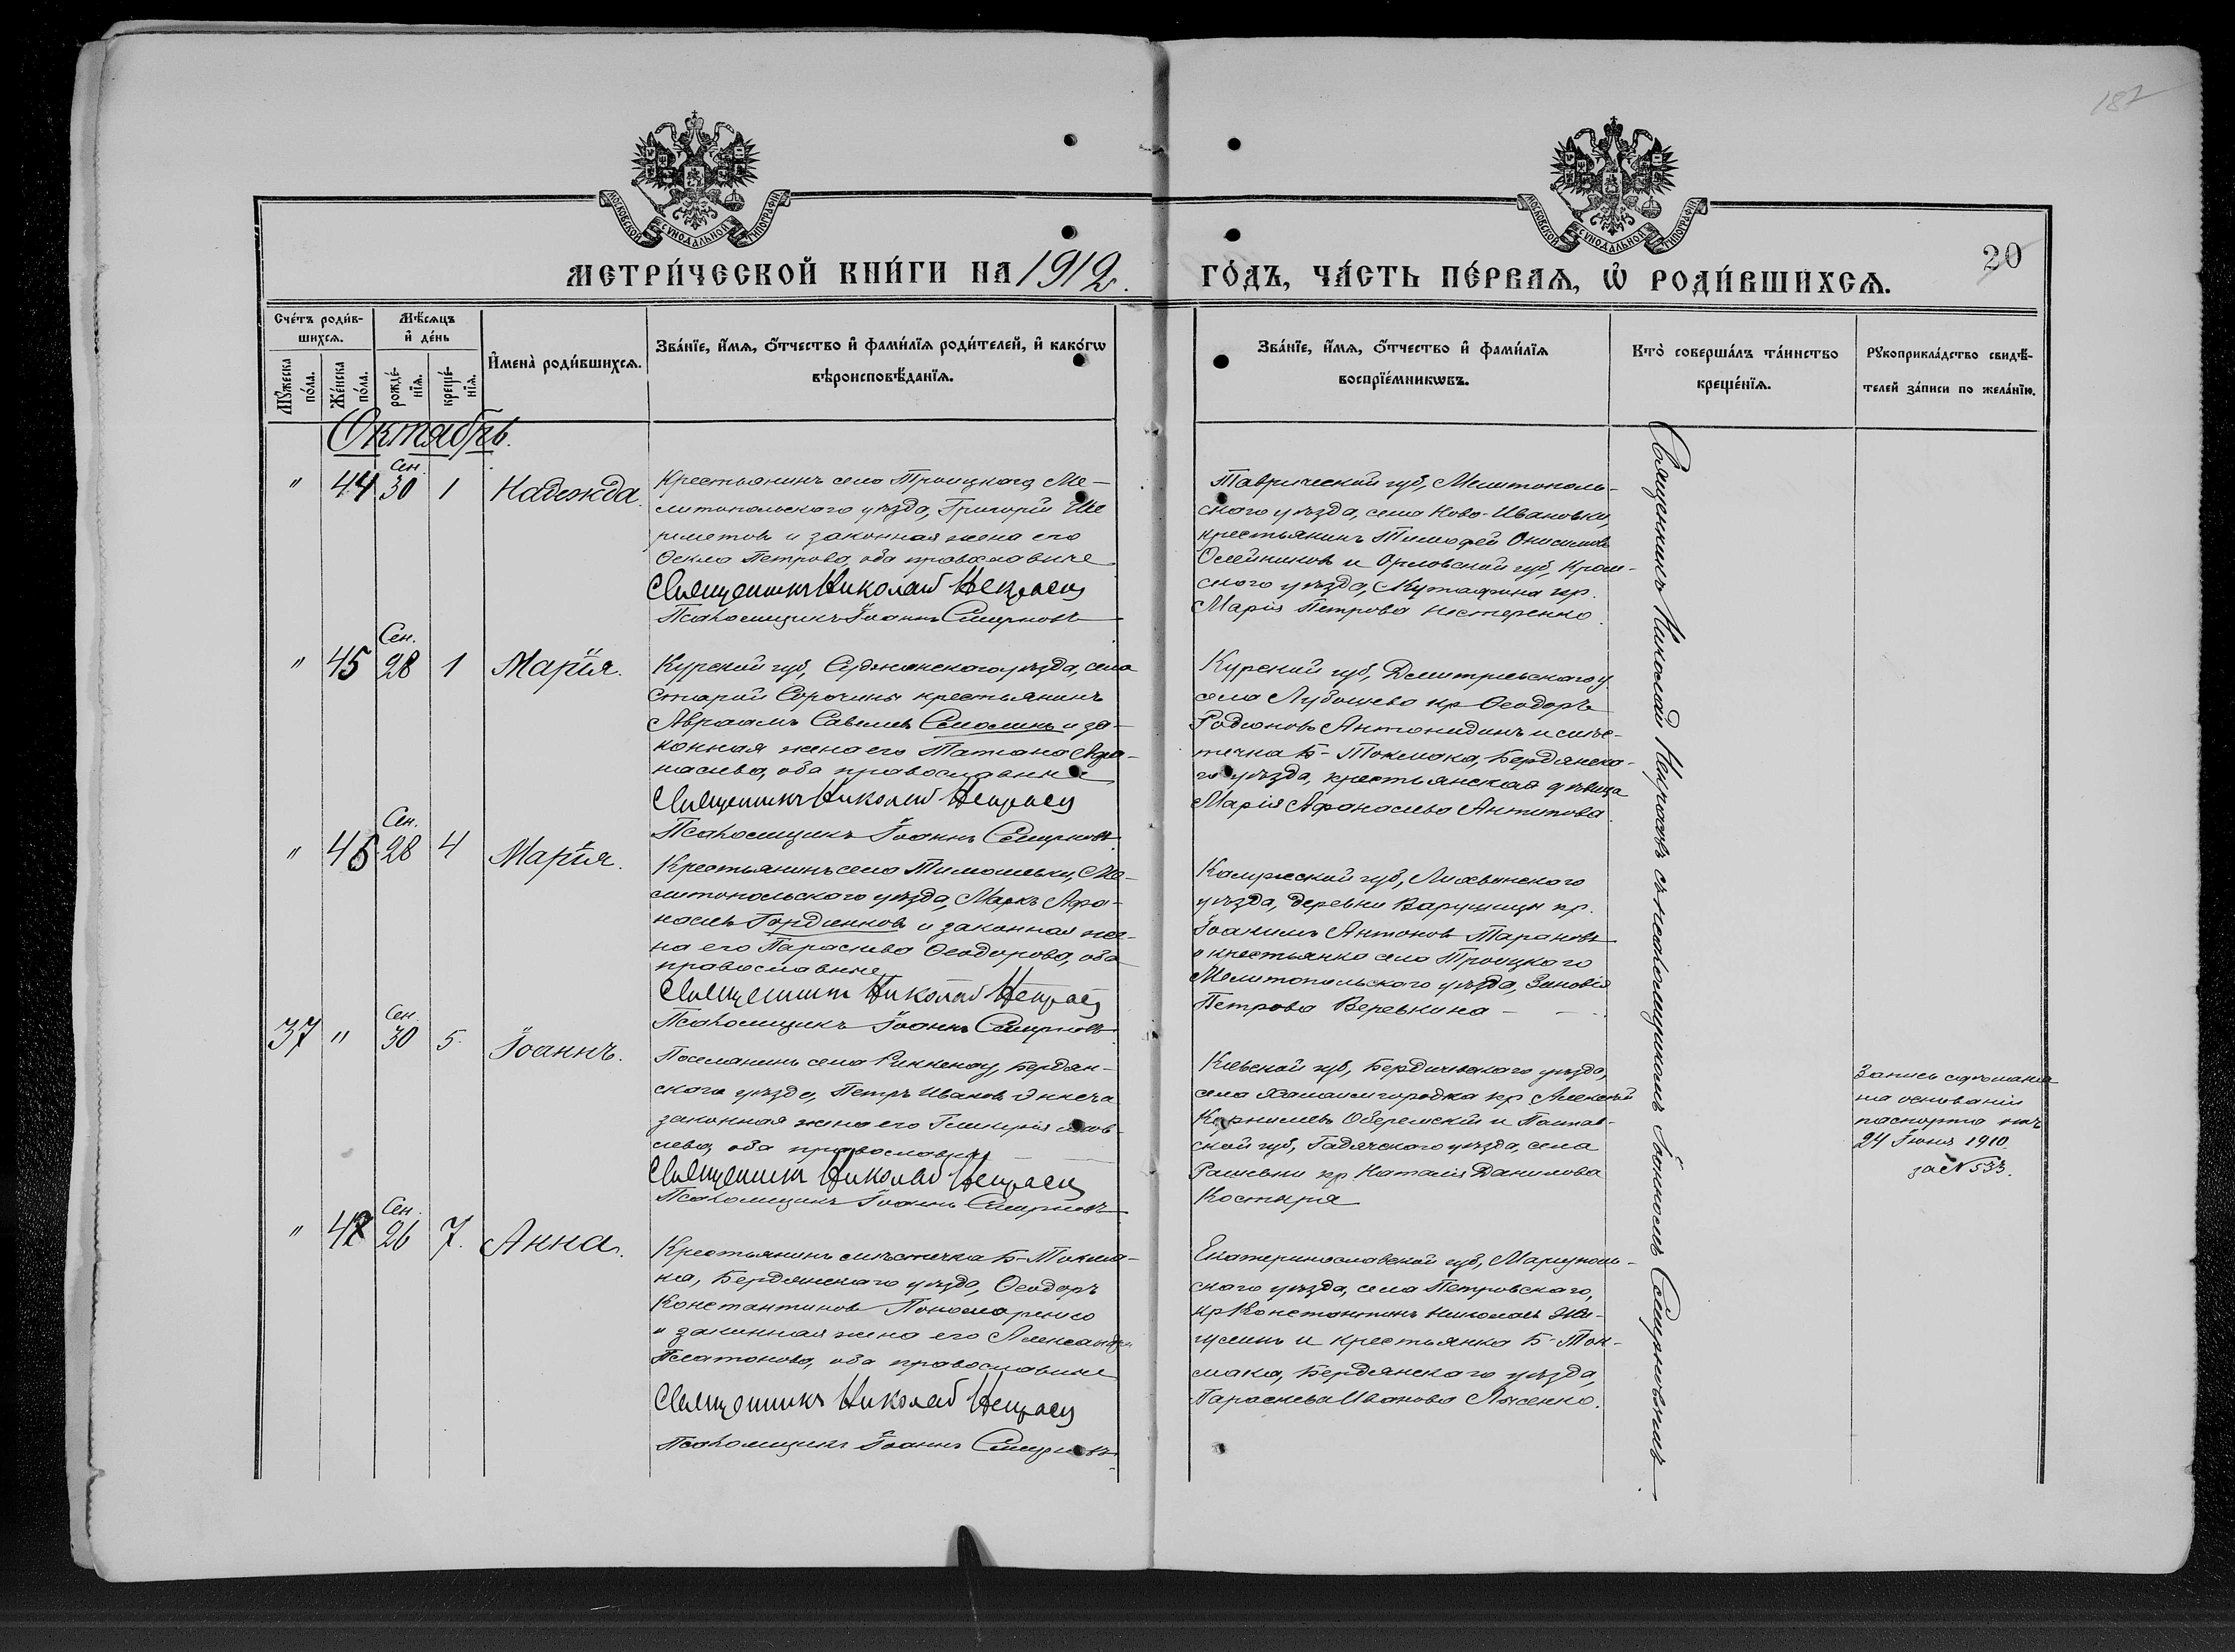 187
МОСКОВСКОЙ СѴНОДАЛЬНОЙ ТИПОГРАФІИ
МОСКОВСКОЙ СѴНОДАЛЬНОЙ ТИПОГРАФІИ
МЕТРИ́ЧЕСКОЙ КНИ́ГИ НА 1912.
ГО́ДЪ, ЧА́СТЬ ПЕ́РВАѦ, Ѡ҆ РОДИ́ВШИХСѦ.
20
Сче́тъ роди́в-
шихсѧ.
Мꙋжеска по́ла.
Же́нска по́ла.
Мѣ́сѧцъ
и҆ де́нь
рожде́-
нїѧ.
креще́-
нїѧ.
И҆мена̀ роди́вшихсѧ.
Зва́нїе, и҆́мѧ, ѻ҆́тчество и҆ фами́лїѧ роди́телей, и҆ како́гѡ
вѣроисповѣ́данїѧ.
Зва́нїе, и҆́мѧ, ѻ҆́тчество и҆ фами́лїѧ
воспрїе́мникѡвъ.
Кто̀ соверша́лъ та́инство
креще́нїѧ.
Рꙋкоприкла́дство свидѣ́-
телей за́писи по жела́нїю.
Октябрь.
" 44 Сен. 30 1 Надежда.
Крестьянинъ села Троицкаго, Ме-
литопольскаго уѣзда, Григорій Ше
реметовъ и законная жена его
Ѳекла Петрова, оба православные
Священникъ Николай Некрасъ
Псаломщикъ Іоаннъ Смирновъ
Таврической губ, Мелитополь-
скаго уѣзда, села Ново-Ивановки,
крестьянинъ Тимофей Онисимовъ
Олейниковъ и Орловской губ, Кром-
скаго уѣзда, кр.
Марія Петрова Нестеренко.
" 45 Сен. 28 1 Марія.
Курской губ, Суджанскаго уѣзда, села
Старой Сорочины крестьянинъ
Авраамъ Савельевъ Самолинъ и за-
конная жена его Татіана Афа-
насьева, оба православные
Священникъ Николай Некрасъ
Псаломщикъ Іоаннъ Смирновъ
Курской губ, Дмитріевскаго у
села Лубошево кр Ѳеодоръ
Родіоновъ Антонидинъ и мѣс-
течка Б-Токмака, Бердянска-
го уѣзда, крестьянская дѣвица
Марія Афанасьева Антипова
" 46 Сен. 28 4 Марія.
Крестьянинъ села Тимошевки, Ме-
литопольскаго уѣзда, Маркъ Афа-
насьевъ Гордіенковъ и законная же-
на его Параскева Ѳеодорова, оба
православные
Священникъ Николай Некрасъ
Псаломщикъ Іоаннъ Смирновъ
Калужской губ, Лихвинскаго
уѣзда, деревни кр.
Іоакимъ Антоновъ Тарановъ
и крестьянка села Троицкаго
Мелитопольскаго уѣзда, Зиновія
Петрова Веревкина
37 " Сен. 30 5 Іоаннъ.
Поселянинъ села Рикенау, Бердян-
скаго уѣзда, Петръ Ивановъ
законная жена его Яков-
лева, оба православны
Священникъ Николай Некрасъ
Псаломщикъ Іоаннъ Смирновъ
Кіевской губ, Бердичевскаго уѣзда,
села кр Алексѣй
Корниліевъ Оберемскій и Полтав-
ской губ, Гадячскаго уѣзда, села
Рашевки кр Наталія Данилова
Костыря
Запись сдѣлана
на основаніи
паспорта отъ
24 Іюня 1910
за № 533.
" 47 Сен. 26 7. Анна.
Крестьянинъ мѣстечка Б-Токма-
ка, Бердянскаго уѣзда, Ѳеодоръ
Константиновъ Пономаренко
и законная жена его Александра
Платонова, оба православные
Священникъ Николай Некрасъ
Псаломщикъ Іоаннъ Смирновъ
Екатеринославской губ, Маріуполь-
скаго уѣзда, села Петровскаго,
кр Константинъ Николаевъ Жи-
гулинъ и крестьянка Б-Ток-
мака, Бердянскаго уѣзда,
Параскева Иванова Лысенко.
Священникъ Николай Некрасовъ съ псаломщикомъ Іоанномъ Смирновымъ